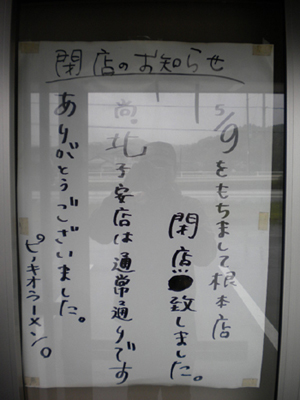 閉店のお知らせ
5/9をもちまして根本店
閉店致しました。
尚、北子安店は通常通りです
ありがとうございました。
ピノキオラーメン。